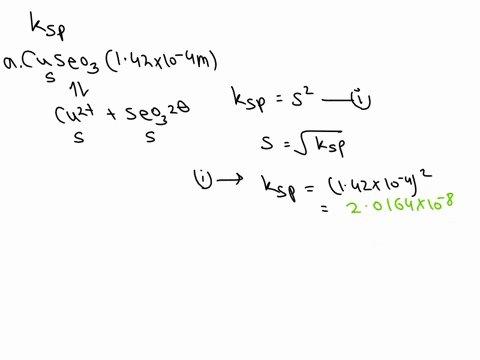 Ksp
a. CuSeO3 (1.42x10-4m)
s
⇌
Cu2+ + SeO3 2⊖
s s
Ksp = s2 —(i)
s = √Ksp
(i) → Ksp = (1.42x10-4)2
= 2.0164x10-8